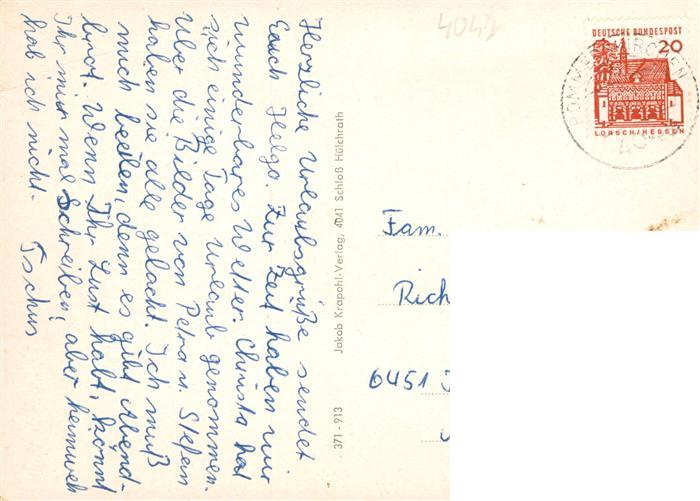 Herzliche Urlaubsgrüße sendet
Euch Helga. Zur Zeit haben wir
wunderbares Wetter. Christa hat
sich einige Tage Urlaub genommen.
Über die Bilder von Petra u. Stefan
haben sie alle gelacht. Ich muß
mich beeilen, denn es gibt Abend-
brot. Wenn Ihr Lust habt, könnt
Ihr mir mal Schreiben! aber heimweh
hab ich nicht. Tschüs
371-913 Jakob Krapohl-Verlag, 4041 Schloß Hülchrath
4042
DEUTSCHE BUNDESPOST
20
LORSCH/HESSEN
Fam.
Rich
6451